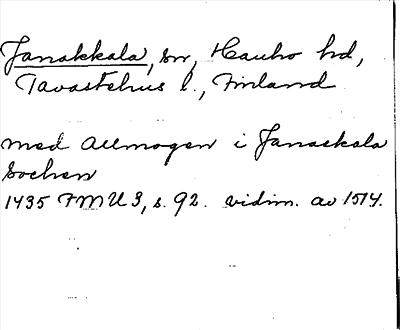 Janakkala, sn, Hauho hd,
Tavastehus l., Finland
med allmogen i Janackala
sochen
1435 FMU 3, s. 92. vidim. av 1514.